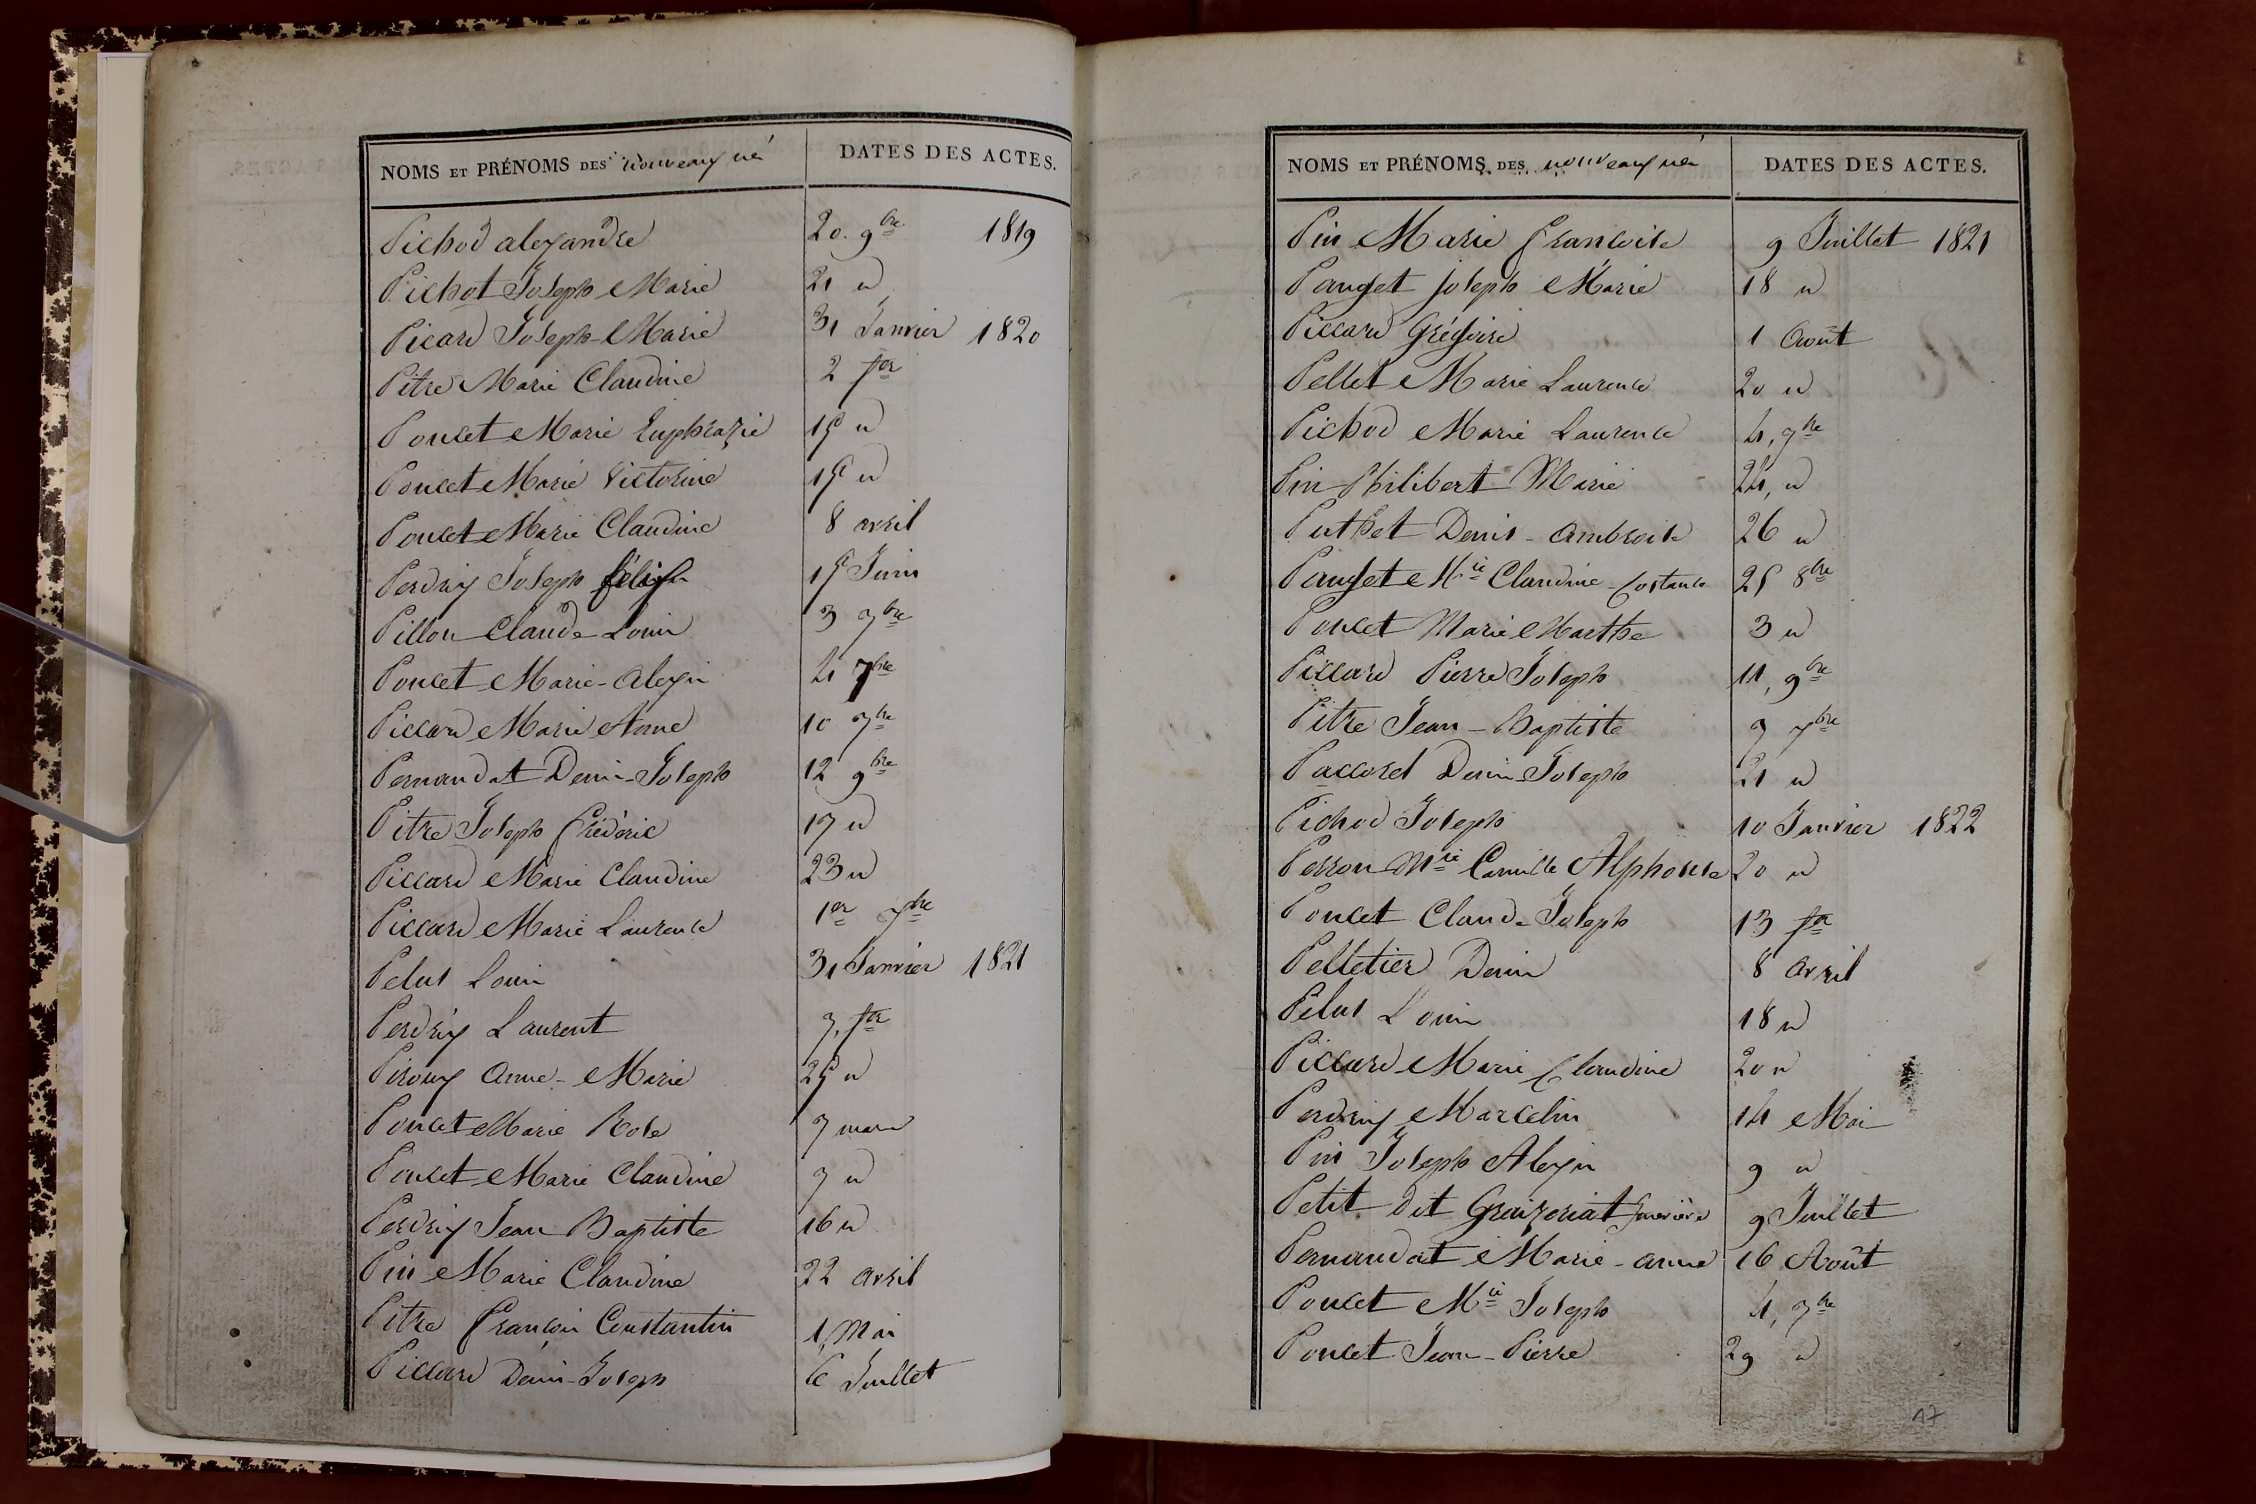 NOMS ET PRÉNOMS DES nouveaux nés DATES DES ACTES.
Pichod alexandre 20. 9bre 1819
Pichot Joseph Marie 21 "
Picard Joseph-Marie 31 Janvier 1820
Pitre Marie Claudine 2 fer
Poncet Marie Euphrazie 15 "
Poncet Marie Victorine 15 "
Poncet Marie Claudine 8 avril
Perdrix Joseph félix 15 Juin
Pillou Claude Louis 3 7bre
Poncet Marie-alexis 4 7bre
Piccard Marie Anne 10 7bre
Pernaudat Denis-Joseph 12 9bre
Pitre Joseph Fréderic 17 "
Piccard Marie Claudine 23 "
Piccard Marie Laurence 1er xbre
Pelus Louis 31 Janvier 1821
Perdrix Laurent 7, fer
Piroux Anne-Marie 25 "
Poncet Marie Rose 7 mars
Poncet Marie Claudine 9 "
Perdrix Jean Baptiste 16 "
Pin Marie Claudine 22 avril
Pitre François Constantin 1, Mai
Piccard Denis-Joseph 6 Juillet
NOMS ET PRÉNOMS DES nouveaux nés DATES DES ACTES.
Pin Marie Françoise 9 Juillet 1821
Panget joseph Marie 18 "
Piccard Grégoire 1 Août
Pellet Marie Laurence 20 "
Pichod Marie Laurence 4, 7bre
Pin Philibert Marie 24, "
Puthet Denis-Ambroise 26 "
Panget Mie Claudine Costance 25 8bre
Poncet Marie Marthe 3 "
Piccard Pierre Joseph 11, 9bre
Pitre Jean-Baptiste 9 xbre
Paccoret Denis-Joseph 21 "
Pichod Joseph 10 Janvier 1822
Perron Mie Camille Alphonse 20 "
Poncet Claude Joseph 13 fer
Pelletier Denis 8 avril
Pelus Louis 18 "
Piccard Marie Claudine 20 "
Perdrix Marcelin 14 Mai
Pin Joseph Alexis 9 "
Petit dit 9 Juillet
Pernaudat Marie-anne 16 Août
Poncet Mie Joseph 4, 7bre
Poncet Jean-Pierre 29 "
17